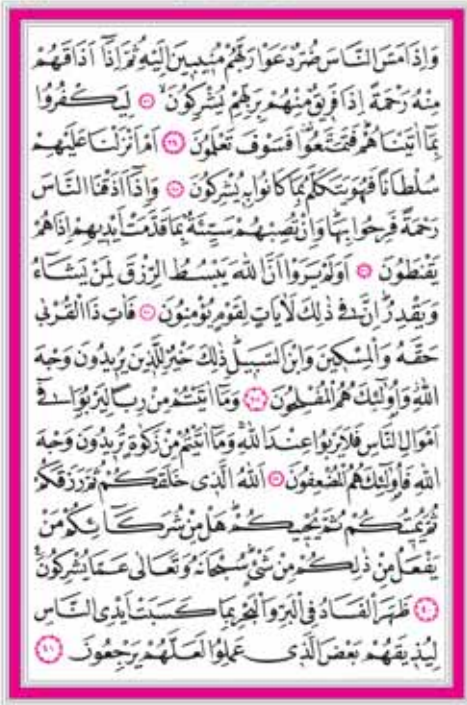 وَاِذَا مَسَّ النَّاسَ ضُرٌّ دَعَوْا رَبَّهُمْ مُنٖيبٖينَ اِلَيْهِ ثُمَّ اِذَٓا اَذَاقَهُمْ
مِنْهُ رَحْمَةً اِذَا فَرٖيقٌ مِنْهُمْ بِرَبِّهِمْ يُشْرِكُونَۙ ﴿٣٣﴾ لِيَكْفُرُوا
بِمَٓا اٰتَيْنَاهُمْؕ فَتَمَتَّعُوا۠ فَسَوْفَ تَعْلَمُونَ ﴿٣٤﴾ اَمْ اَنْزَلْنَا عَلَيْهِمْ
سُلْطَانًا فَهُوَ يَتَكَلَّمُ بِمَا كَانُوا بِهٖ يُشْرِكُونَ ﴿٣٥﴾ وَاِذَٓا اَذَقْنَا النَّاسَ
رَحْمَةً فَرِحُوا بِهَاؕ وَاِنْ تُصِبْهُمْ سَيِّئَةٌ بِمَا قَدَّمَتْ اَيْدٖيهِمْ اِذَا هُمْ
يَقْنَطُونَ ﴿٣٦﴾ اَوَلَمْ يَرَوْا اَنَّ اللّٰهَ يَبْسُطُ الرِّزْقَ لِمَنْ يَشَٓاءُ
وَيَقْدِرُؕ اِنَّ فٖي ذٰلِكَ لَاٰيَاتٍ لِقَوْمٍ يُؤْمِنُونَ ﴿٣٧﴾ فَاٰتِ ذَا الْقُرْبٰى
حَقَّهُ وَالْمِسْكٖينَ وَابْنَ السَّبٖيلِؕ ذٰلِكَ خَيْرٌ لِلَّذٖينَ يُرٖيدُونَ وَجْهَ
اللّٰهِؗ وَاُو۬لٰٓئِكَ هُمُ الْمُفْلِحُونَ ﴿٣٨﴾ وَمَٓا اٰتَيْتُمْ مِنْ رِبًا لِيَرْبُوَ۬ا فٖٓي
اَمْوَالِ النَّاسِ فَلَا يَرْبُوا عِنْدَ اللّٰهِۚ وَمَٓا اٰتَيْتُمْ مِنْ زَكٰوةٍ تُرٖيدُونَ وَجْهَ
اللّٰهِ فَاُو۬لٰٓئِكَ هُمُ الْمُضْعِفُونَ ﴿٣٩﴾ اَللّٰهُ الَّذٖي خَلَقَكُمْ ثُمَّ رَزَقَكُمْ
ثُمَّ يُمٖيتُكُمْ ثُمَّ يُحْيٖيكُمْؕ هَلْ مِنْ شُرَكَٓائِكُمْ مَنْ
يَفْعَلُ مِنْ ذٰلِكُمْ مِنْ شَيْءٍؕ سُبْحَانَهُ وَتَعَالٰى عَمَّا يُشْرِكُونَ
﴿٤٠﴾ ظَهَرَ الْفَسَادُ فِي الْبَرِّ وَالْبَحْرِ بِمَا كَسَبَتْ اَيْدِي النَّاسِ
لِيُذٖيقَهُمْ بَعْضَ الَّذٖي عَمِلُوا لَعَلَّهُمْ يَرْجِعُونَ ﴿٤١﴾